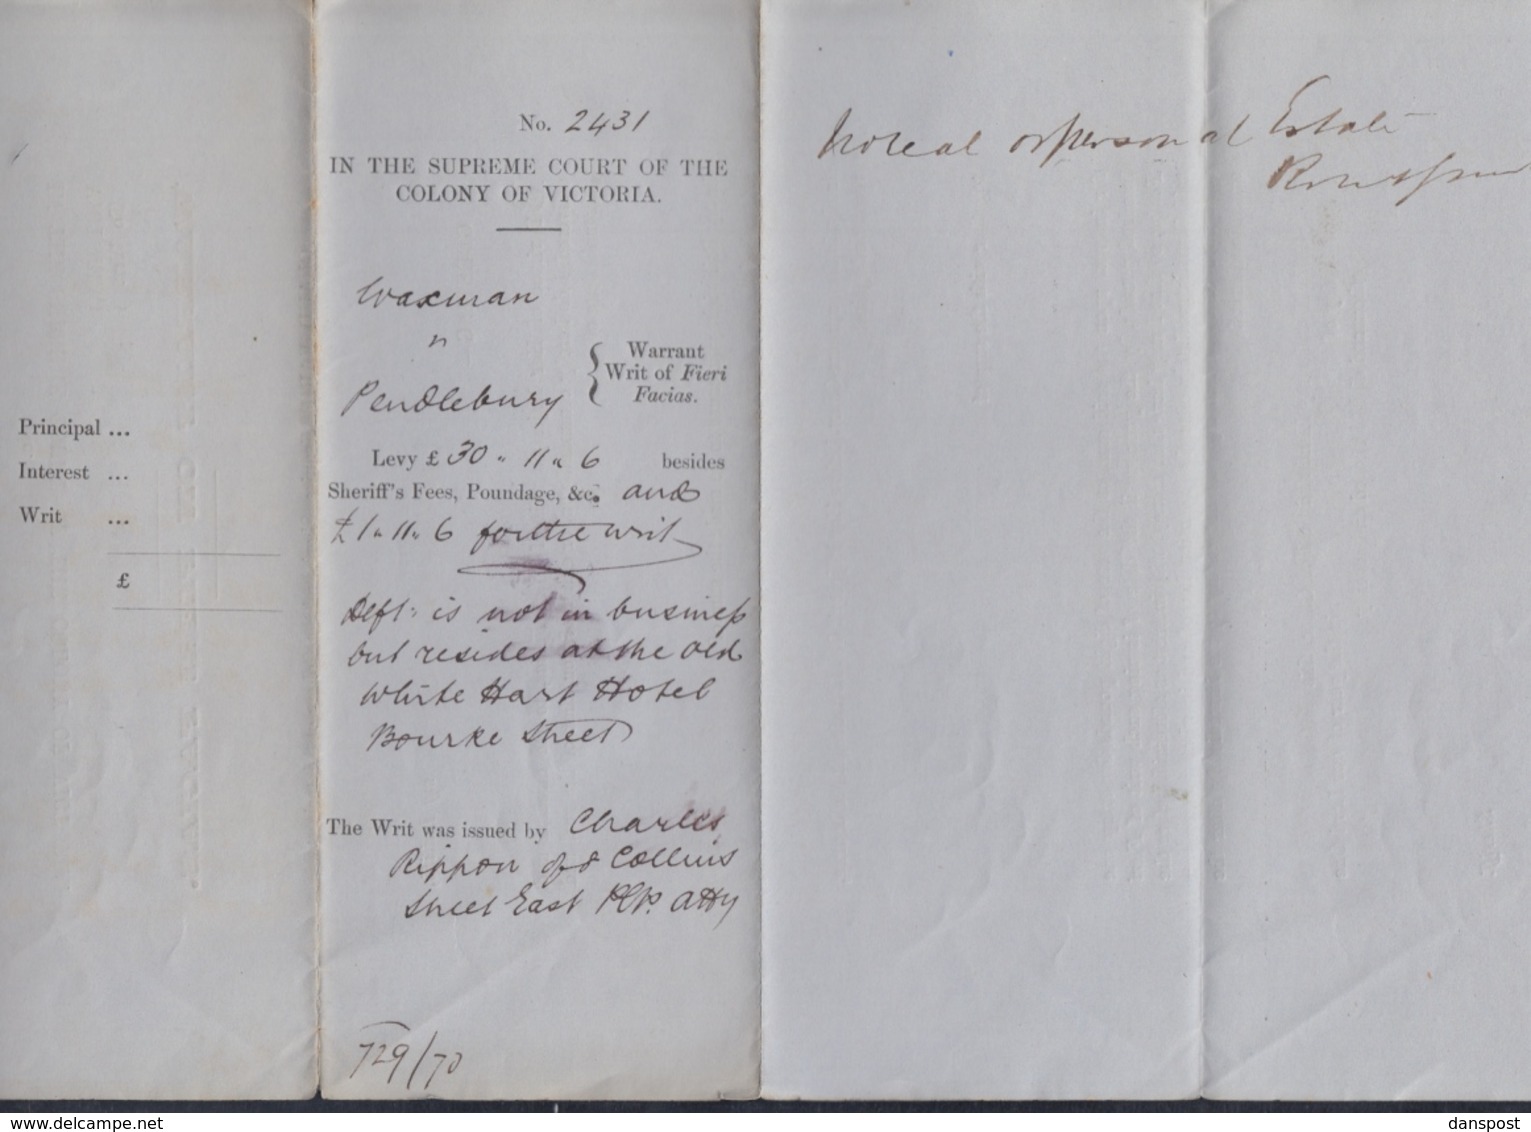 Principal ...
Interest ...
Writ ...
£
No. 2431
IN THE SUPREME COURT OF THE
COLONY OF VICTORIA.
Waxman
v
Pendlebury
Warrant
Writ of Fieri
Facias.
Levy £ 30 " 11 " 6 besides
Sheriff's Fees, Poundage, &c. and
£1 " 11 " 6 for the writ
Deft: is not in business
but resides at the Old
White Hart Hotel
Bourke Street
The Writ was issued by Charles
Rippon of 8 Collins
Street East Plt. Atty
729/70
No real or personal Estate
www.delcampe.net
danspost